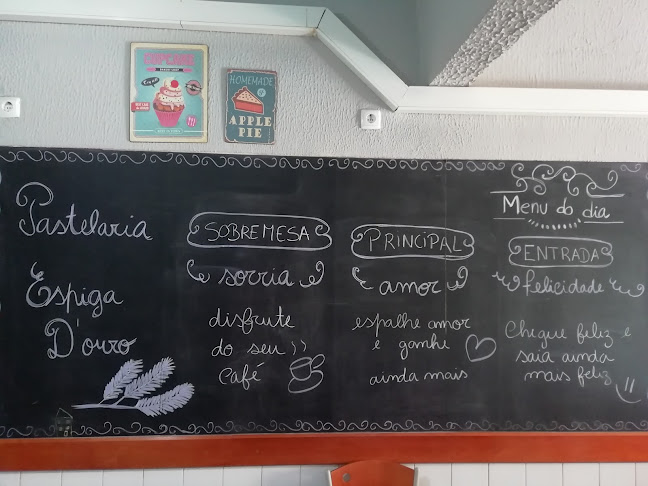 CUPCAKE
HOMEMADE
APPLE
PIE
Pastelaria
Espiga
D'ouro
SOBREMESA
sorria
disfrute
do seu
café
PRINCIPAL
amor
espalhe amor
e ganhe
ainda mais
Menu do dia
ENTRADA
felicidade
Chegue feliz e
saia ainda
mais feliz